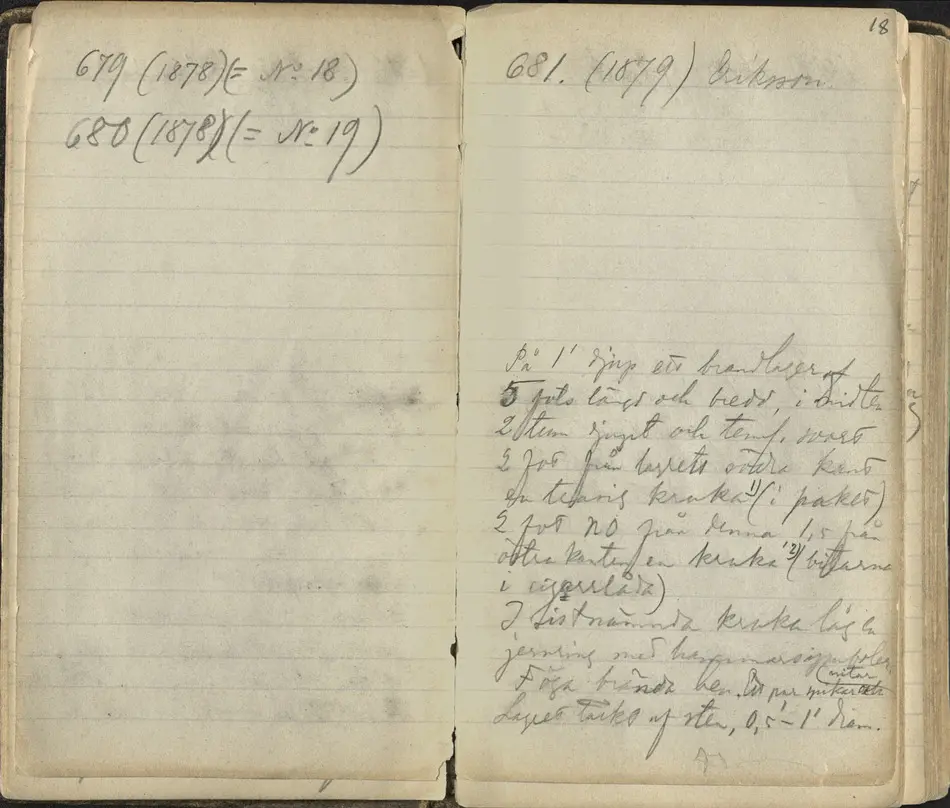 679 (1878) (= No 18)
680 (1878) (= No 19)
18
681. (1879) Eriksson.
På 1' djup ett brandlager af
5 fots längd och bredd, i midten
2 tum djupt och teml. svart
2 fot från lagrets södra kant
en trasig kruka 1) (i paket)
2 fot NO från denna 1,5 från
östra kanten en kruka 2) (bitarna
i cigarrlåda)
I sistnämnda kruka låg en
jernring med hammarsymboler
Föga brända ben. Ett par nitar
Lagret täckt af sten, 0,5'-1' diam.